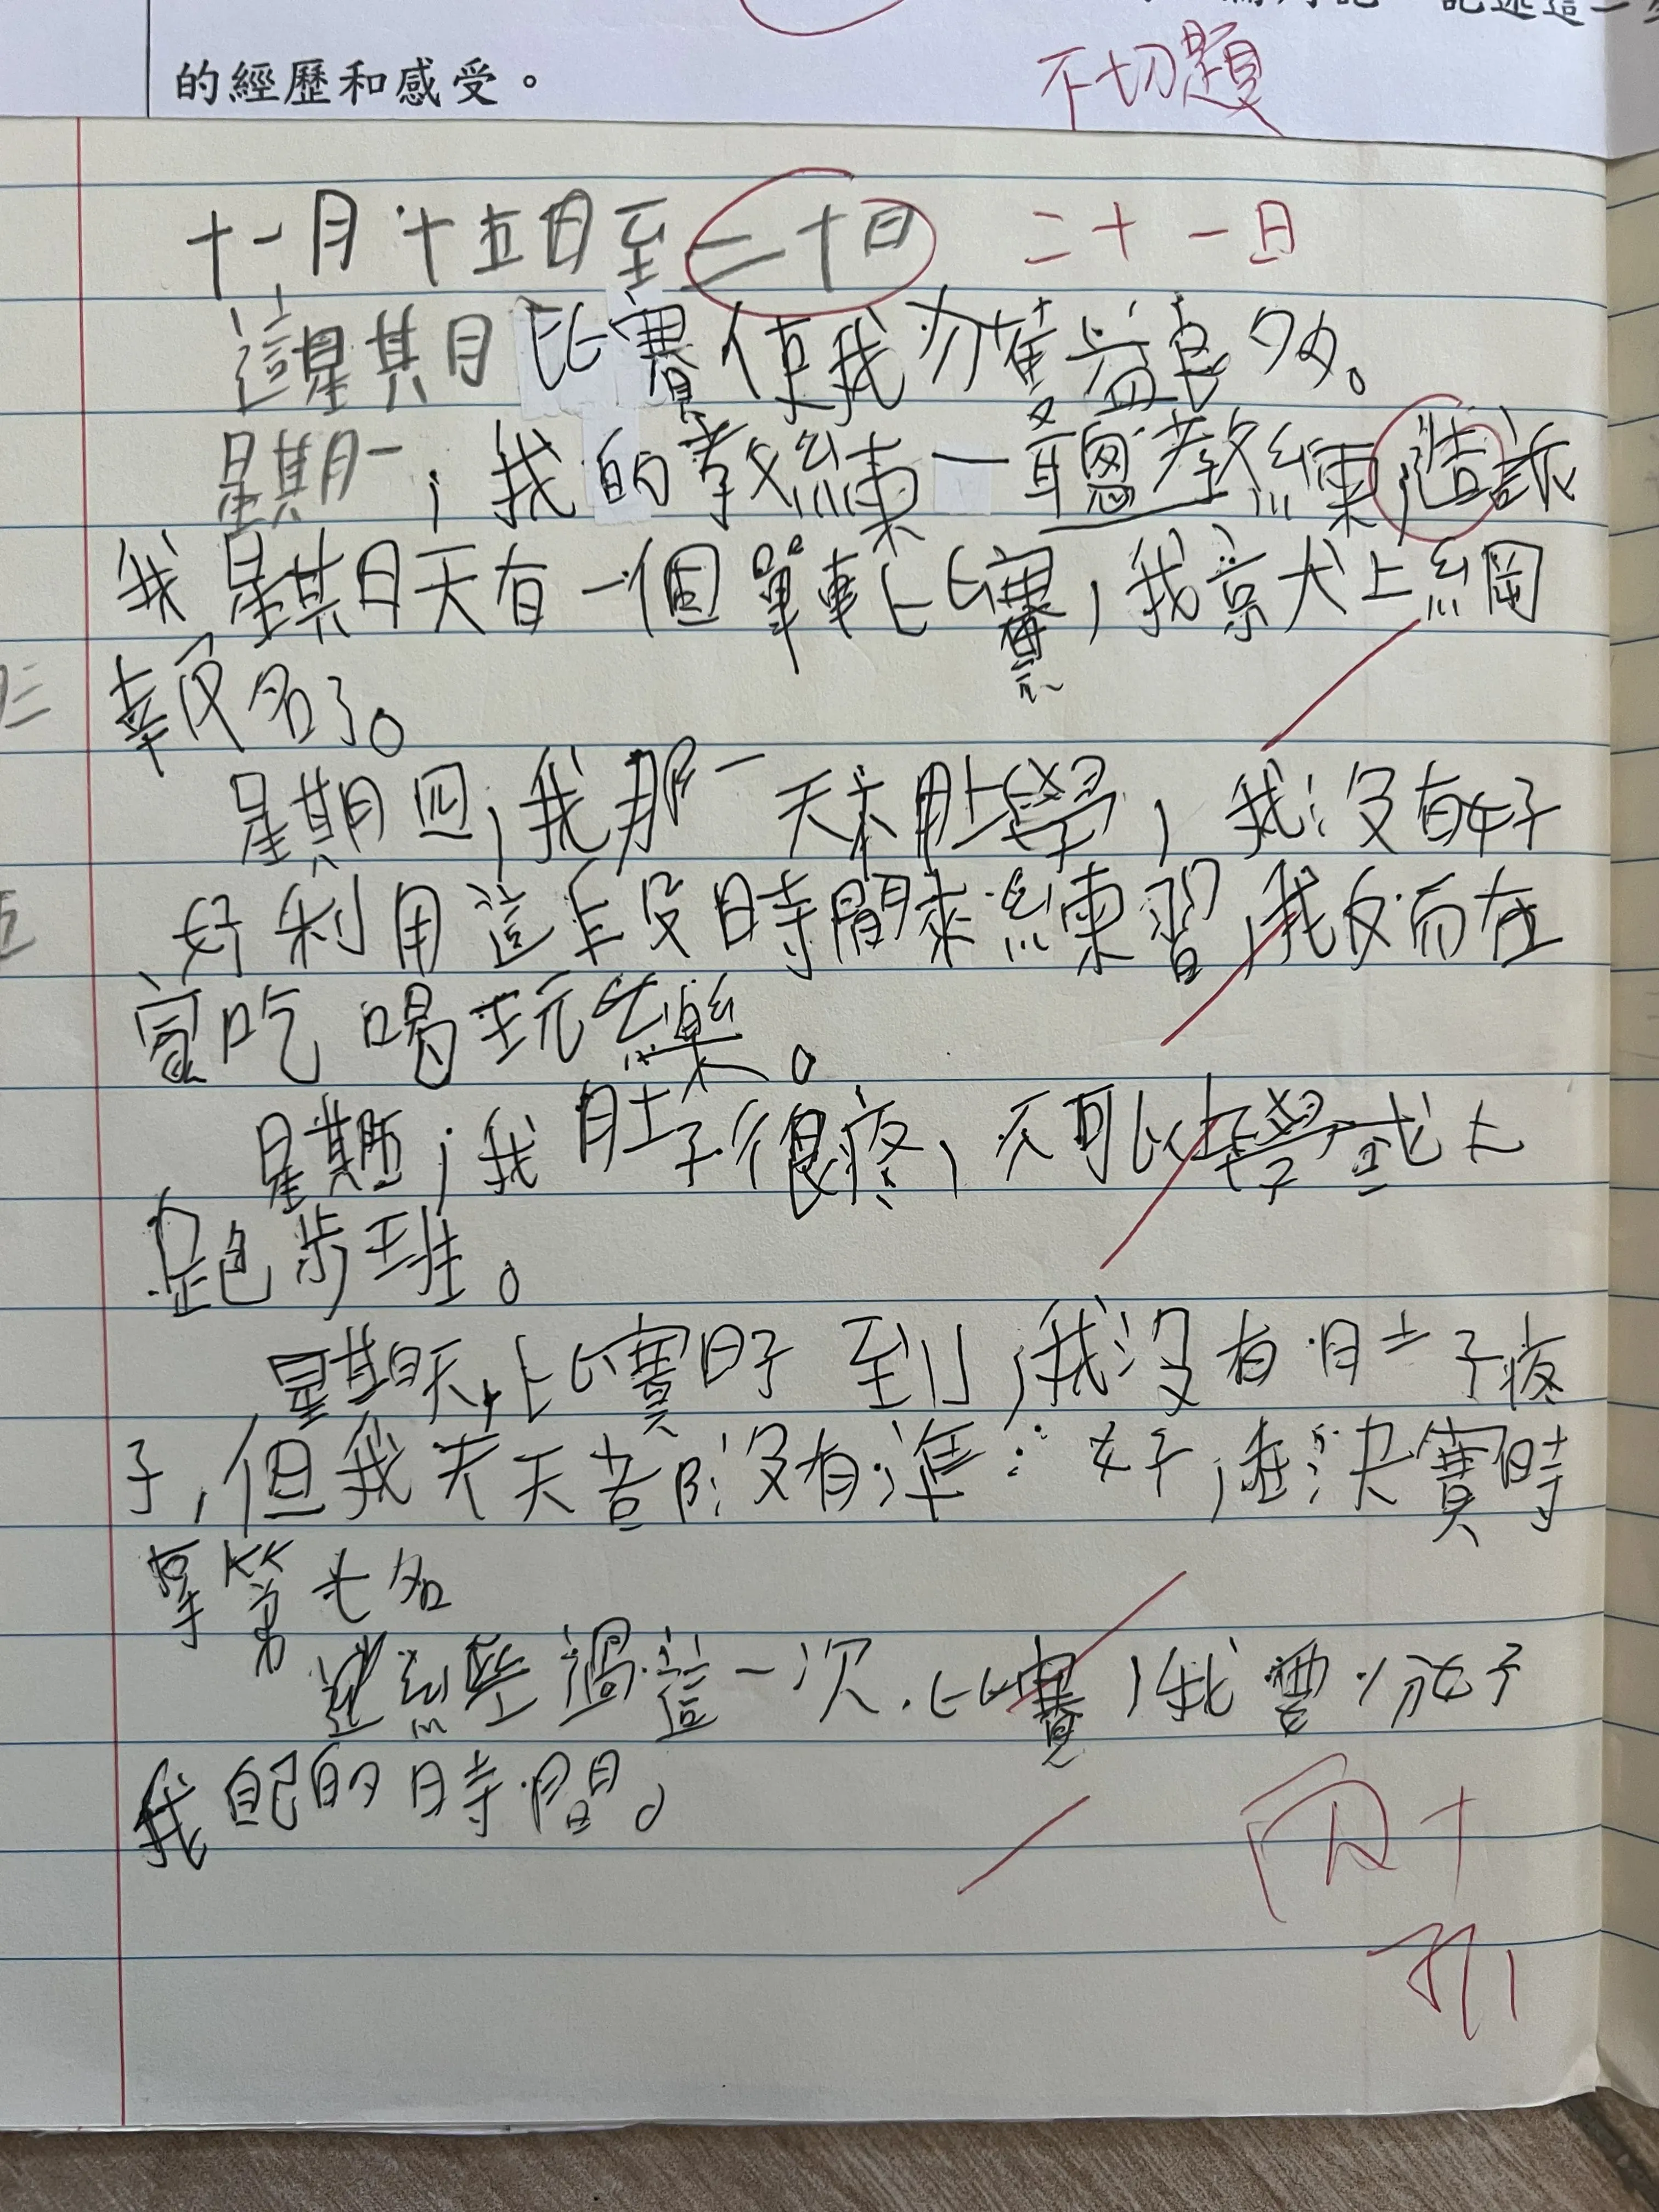 記述這一
的經歷和感受。
不切題
十一月十五日至二十日 二十一日
這星期比賽使我獲益良多。
星期一,我的教練一聰教練,造訴
我星期天有一個單車比賽,我竟犬上網
報名了。
星期四,我那一天不用上學,我沒有好
好利用這段時間來練習,我反而在
家吃喝玩樂。
星期五,我肚子很疼,不可以上學或上
跑步班。
星期天,比賽日子到,我沒有肚子疼
子,但我天天都沒有準好,在決賽時
拿第七名
經過這一次比賽,我要分好
我自己的時間。
丙+